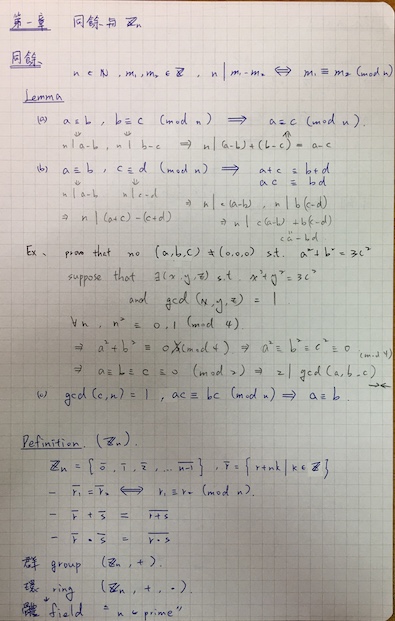 第一章 同餘與 ℤn
同餘
n ∈ ℕ, m₁, m₂ ∈ ℤ, n | m₁-m₂ ⇔ m₁ ≡ m₂ (mod n)
Lemma
(a) a ≡ b, b ≡ c (mod n) ⇒ a ≡ c (mod n).
n | a-b, n | b-c ⇒ n | (a-b)+(b-c) = a-c
(b) a ≡ b, c ≡ d (mod n) ⇒ a+c ≡ b+d
ac ≡ bd
n | a-b n | c-d ⇒ n | c(a-b), n | b(c-d)
⇒ n | (a+c)-(c+d) ⇒ n | c(a-b)+b(c-d)
ca-bd
Ex. that no (a,b,c) ≠ (0,0,0) s.t. a²+b² = 3c²
suppose that ∃(x,y,z) s.t. x²+y² = 3c²
and gcd (x,y,z) = 1
∀n, n² ≡ 0,1 (mod 4)
⇒ a²+b² ≡ 0 (mod 4) ⇒ a² ≡ b² ≡ c² ≡ 0 (mod 4)
⇒ a ≡ b ≡ c ≡ 0 (mod 2) ⇒ 2 | gcd (a,b,c)
→←
(c) gcd (c,n) = 1, ac ≡ bc (mod n) ⇒ a ≡ b.
Definition. (ℤn).
ℤn = { 0̅, 1̅, 2̅, ... n-1 }, r̅ = { r+nk | k ∈ ℤ }
- r̅₁ = r̅₂ ⇔ r₁ ≡ r₂ (mod n).
- r̅ + s̅ = r+s
- r̅ · s̅ = r·s
群 group (ℤn, +).
環 ring (ℤn, +, ·).
體 field "n prime"